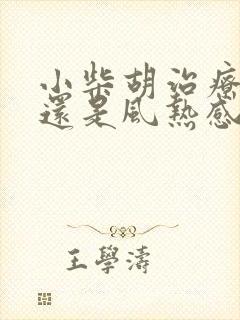 小柴胡治療
還是風熱感
王學濤